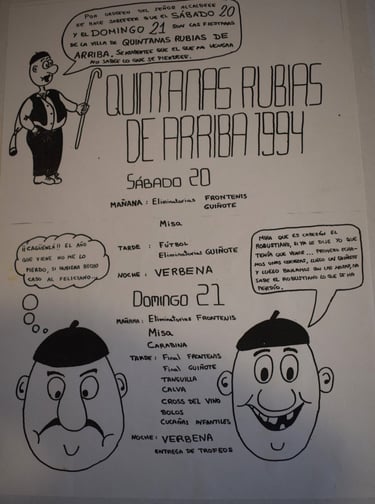 POR ORDEEN DEL SEÑOR ALCALDEEE
SE HACE SABEEER QUE EL SÁBADO 20
Y EL DOMINGO 21 SON LAS FIESTAAS
DE LA VILLA DE QUINTANAS RUBIAS DE
ARRIBA. SEÑAMENTE QUE EL QUE NO VENGAA
NO SABE LO QUE SE PIERDEEE.
QUINTANAS RUBIAS
DE ARRIBA 1994
SÁBADO 20
MAÑANA: Eliminatorias FRONTENIS
GUIÑOTE
Misa
TARDE: FÚTBOL
Eliminatorias GUIÑOTE
NOCHE: VERBENA
¡¡CAGÜENLA!! EL AÑO
QUE VIENE NO ME LO
PIERDO, SI HUBIERA HECHO
CASO AL FELICIANO...
MIRA QUE ES CABEZÓN EL
ROBUSTIANO, SI YA LE DIJE YO QUE
TENÍA QUE VENIR... PRIMERO ECHA-
MOS UNAS CERVEZAS, LUEGO UN GUIÑOTE
Y LUEGO BAILAMOS CON LAS MOZAS, NO
SABE EL ROBUSTIANO LO QUE SE HA
PERDÍO.
DOMINGO 21
MAÑANA: Eliminatorias FRONTENIS
Misa
CARABINA
TARDE: Final FRONTENIS
Final GUIÑOTE
TANGUILLA
CALVA
CROSS DEL VINO
BOLOS
CUCAÑAS INFANTILES
NOCHE: VERBENA
ENTREGA DE TROFEOS